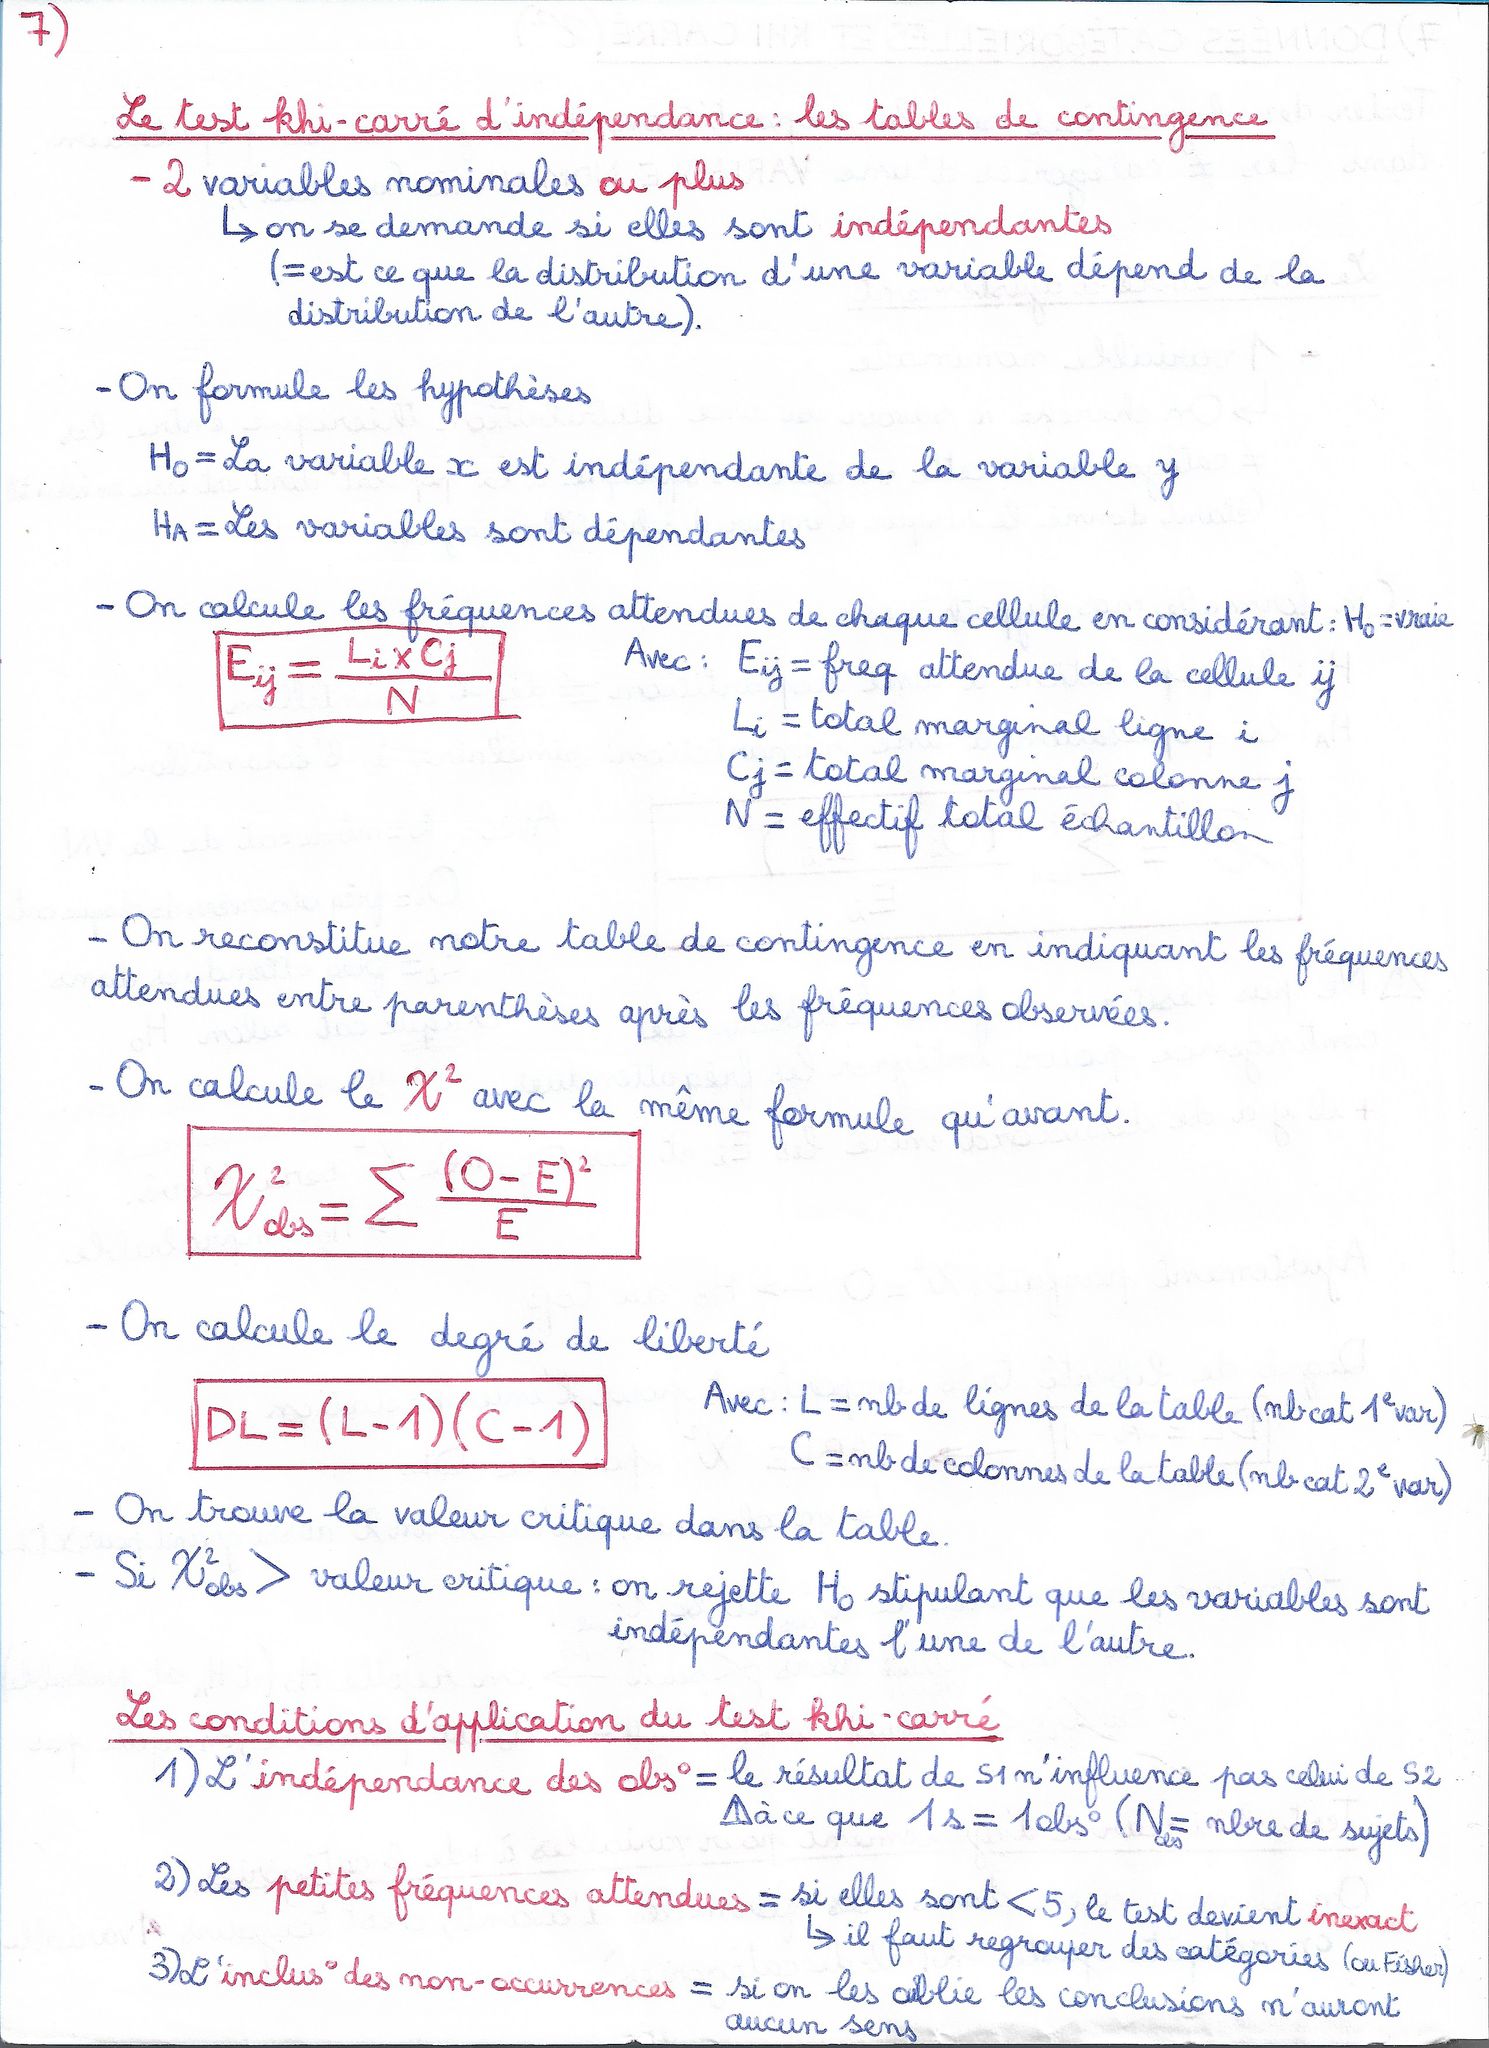 7)
Le test khi-carré d'indépendance : les tables de contingence
- 2 variables nominales ou plus
↳ on se demande si elles sont indépendantes
(= est ce que la distribution d'une variable dépend de la
distribution de l'autre).
- On formule les hypothèses
H₀ = La variable x est indépendante de la variable y
HA = Les variables sont dépendantes
- On calcule les fréquences attendues de chaque cellule en considérant : H₀ = vraie
Eij = Li x Cj / N
Avec : Eij = freq attendue de la cellule ij
Li = total marginal ligne i
Cj = total marginal colonne j
N = effectif total échantillon
- On reconstitue notre table de contingence en indiquant les fréquences
attendues entre parenthèses après les fréquences observées.
- On calcule le χ² avec la même formule qu'avant.
χ²obs = ∑ (O - E)² / E
- On calcule le degré de liberté
DL = (L - 1) (C - 1)
Avec : L = nb de lignes de la table (nb cat 1e var)
C = nb de colonnes de la table (nb cat 2e var)
- On trouve la valeur critique dans la table.
- Si χ²obs > valeur critique : on rejette H₀ stipulant que les variables sont
indépendantes l'une de l'autre.
Les conditions d'application du test khi-carré
1) L'indépendance des obs° = le résultat de S1 n'influence pas celui de S2
⚠ à ce que 1s = 1obs° (N obs = nbre de sujets)
2) Les petites fréquences attendues = si elles sont < 5, le test devient inexact
↳ il faut regrouper des catégories (ou Fisher)
3) L'inclus° des non-occurrences = si on les oublie les conclusions n'auront
aucun sens